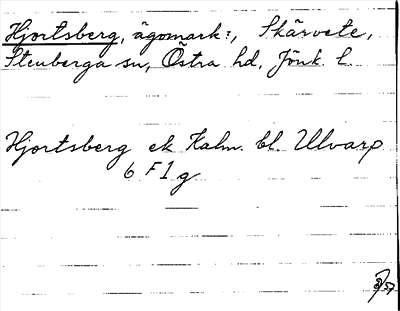 Hjortsberg, ägomark:, Skärvete,
Stenberga sn, Östra hd, Jönk. l.
Hjortsberg ek Kalm. bl. Ulvarp
6 F 1 g